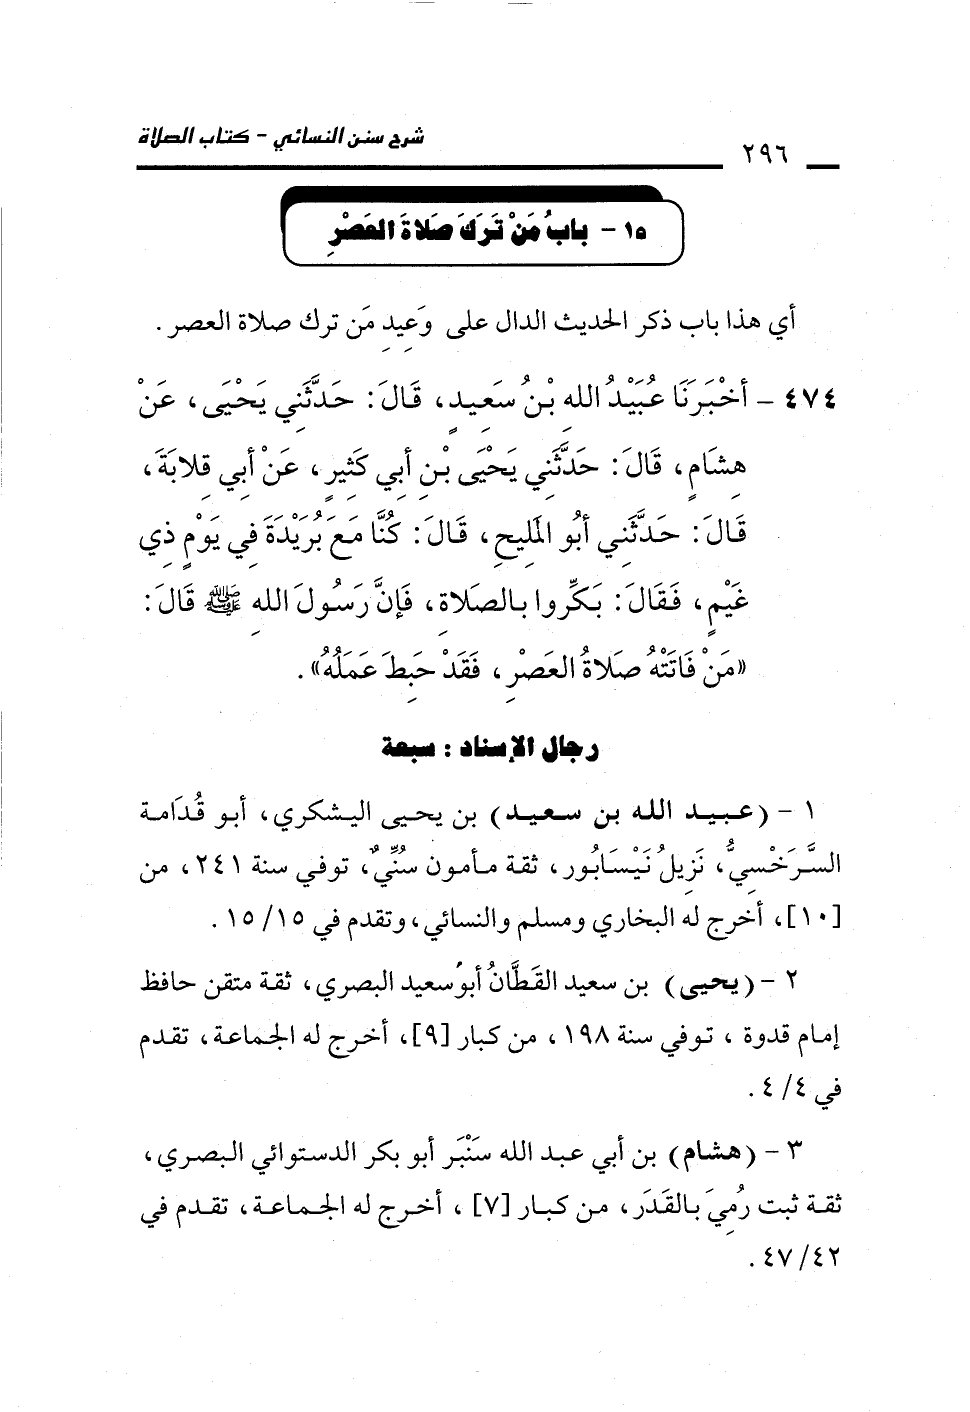 شرح سنن النسائي - كتاب الصلاة
٢٩٦
١٥ - بابُ مَنْ تَرَكَ صَلاةَ العَصْرِ
أي هذا باب ذكر الحديث الدال على وَعِيدِ مَن ترك صلاة العصر.
٤٧٤ - أخْبَرَنَا عُبَيْدُ اللهِ بْنُ سَعِيدٍ، قَالَ: حَدَّثَنِي يَحْيَى، عَنْ
هِشَامٍ، قَالَ: حَدَّثَنِي يَحْيَى بْنِ أبِي كَثِيرٍ، عَنْ أبِي قِلابَةَ،
قَالَ: حَدَّثَنِي أبُو المَلِيحِ، قَالَ: كُنَّا مَعَ بُرَيْدَةَ فِي يَوْمٍ ذِي
غَيْمٍ، فَقَالَ: بَكِّرُوا بِالصَلاةِ، فَإنَّ رَسُولَ اللهِ ﷺ قَالَ:
«مَنْ فَاتَتْهُ صَلاةُ العَصْرِ، فَقَدْ حَبِطَ عَمَلُهُ».
رجال الإسناد: سبعة
١ - (عبيد الله بن سعيد) بن يحيى اليشكري، أبو قُدَامة
السَّرَخْسِيُّ، نَزِيلُ نَيْسَابُور، ثقة مأمون سُنِّيٌّ، توفي سنة ٢٤١، من
[١٠]، أخرج له البخاري ومسلم والنسائي، وتقدم في ١٥/١٥.
٢ - (يحيى) بن سعيد القَطَّانُ أبوُ سعيد البصري، ثقة متقن حافظ
إمام قدوة، توفي سنة ١٩٨، من كبار [٩]، أخرج له الجماعة، تقدم
في ٤/٤.
٣ - (هشام) بن أبي عبد الله سَنْبَر أبو بكر الدستوائي البصري،
ثقة ثبت رُمِيَ بالقَدَر، من كبار [٧]، أخرج له الجماعة، تقدم في
٤٧/٤٢.